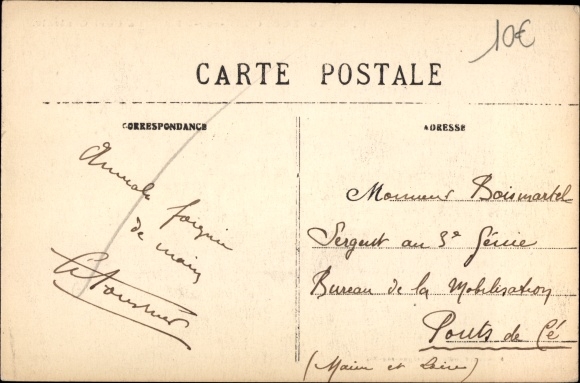 10€
CARTE POSTALE
CORRESPONDANCE
ADRESSE
Amicale poignée
de main
Monsieur Boismartel
Sergent au 3e Génie
Bureau de la Mobilisation
Ponts de Cé
(Maine et Loire)